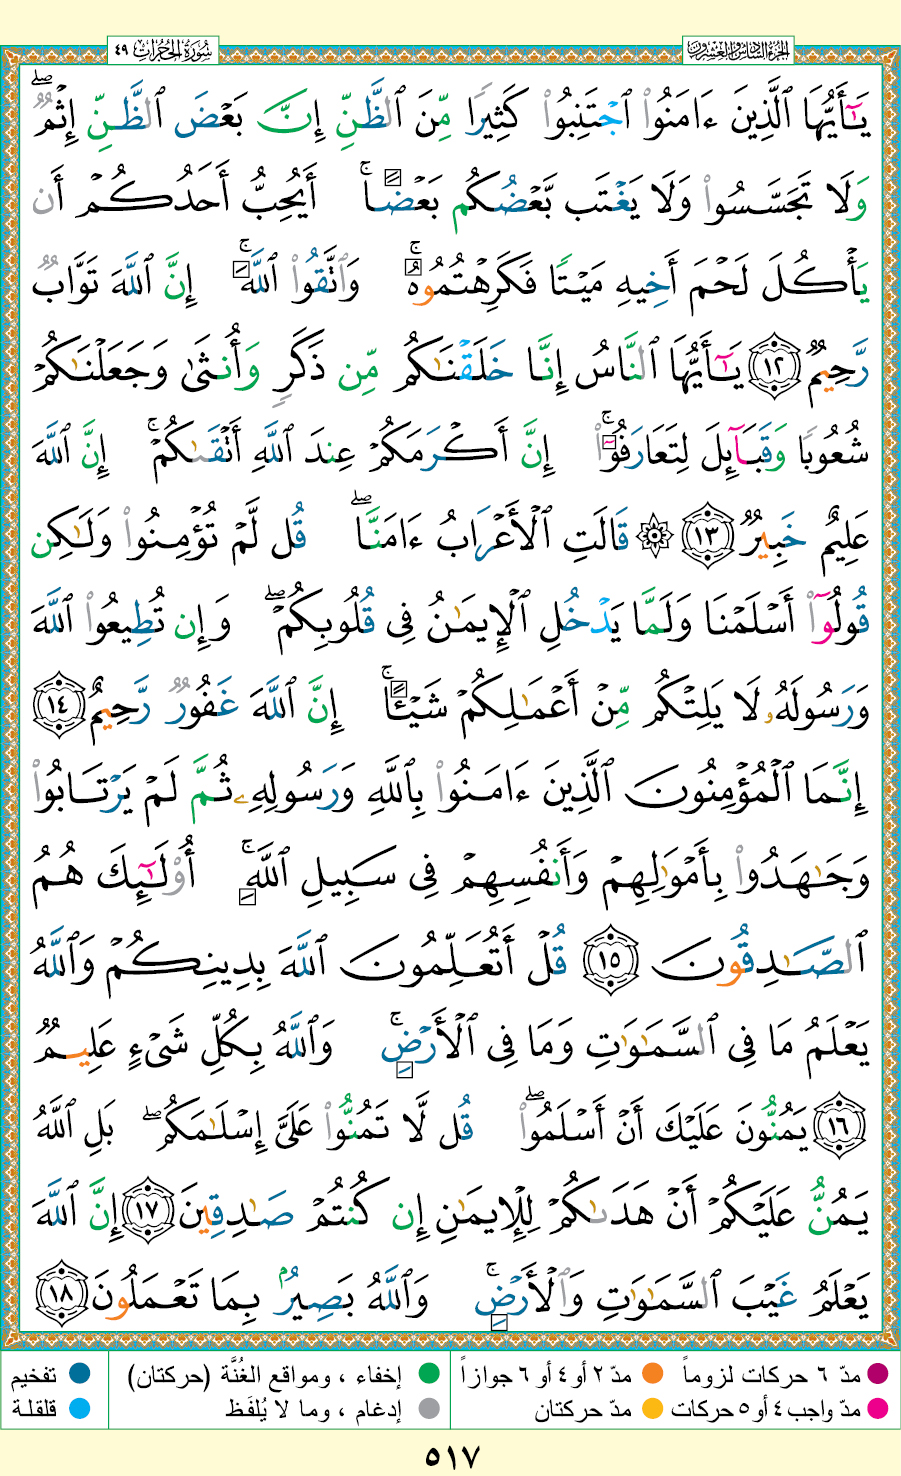 سُورَةُ الحُجُرَات ٤٩
الجزء السادس والعشرون
يَـٰٓأَيُّهَا ٱلَّذِينَ ءَامَنُوا۟ ٱجْتَنِبُوا۟ كَثِيرًا مِّنَ ٱلظَّنِّ إِنَّ بَعْضَ ٱلظَّنِّ إِثْمٌ ۖ
وَلَا تَجَسَّسُوا۟ وَلَا يَغْتَب بَّعْضُكُم بَعْضًا ۚ أَيُحِبُّ أَحَدُكُمْ أَن
يَأْكُلَ لَحْمَ أَخِيهِ مَيْتًا فَكَرِهْتُمُوهُ ۚ وَٱتَّقُوا۟ ٱللَّهَ ۚ إِنَّ ٱللَّهَ تَوَّابٌ
رَّحِيمٌ ١٢ يَـٰٓأَيُّهَا ٱلنَّاسُ إِنَّا خَلَقْنَـٰكُم مِّن ذَكَرٍ وَأُنثَىٰ وَجَعَلْنَـٰكُمْ
شُعُوبًا وَقَبَآئِلَ لِتَعَارَفُوٓا۟ ۚ إِنَّ أَكْرَمَكُمْ عِندَ ٱللَّهِ أَتْقَىٰكُمْ ۚ إِنَّ ٱللَّهَ
عَلِيمٌ خَبِيرٌ ١٣ ۞ قَالَتِ ٱلْأَعْرَابُ ءَامَنَّا ۖ قُل لَّمْ تُؤْمِنُوا۟ وَلَـٰكِن
قُولُوٓا۟ أَسْلَمْنَا وَلَمَّا يَدْخُلِ ٱلْإِيمَـٰنُ فِى قُلُوبِكُمْ ۖ وَإِن تُطِيعُوا۟ ٱللَّهَ
وَرَسُولَهُۥ لَا يَلِتْكُم مِّنْ أَعْمَـٰلِكُمْ شَيْـًٔا ۚ إِنَّ ٱللَّهَ غَفُورٌ رَّحِيمٌ ١٤
إِنَّمَا ٱلْمُؤْمِنُونَ ٱلَّذِينَ ءَامَنُوا۟ بِٱللَّهِ وَرَسُولِهِۦ ثُمَّ لَمْ يَرْتَابُوا۟
وَجَـٰهَدُوا۟ بِأَمْوَٰلِهِمْ وَأَنفُسِهِمْ فِى سَبِيلِ ٱللَّهِ ۚ أُو۟لَـٰٓئِكَ هُمُ
ٱلصَّـٰدِقُونَ ١٥ قُلْ أَتُعَلِّمُونَ ٱللَّهَ بِدِينِكُمْ وَٱللَّهُ
يَعْلَمُ مَا فِى ٱلسَّمَـٰوَٰتِ وَمَا فِى ٱلْأَرْضِ ۚ وَٱللَّهُ بِكُلِّ شَىْءٍ عَلِيمٌ
١٦ يَمُنُّونَ عَلَيْكَ أَنْ أَسْلَمُوا۟ ۖ قُل لَّا تَمُنُّوا۟ عَلَىَّ إِسْلَـٰمَكُم ۖ بَلِ ٱللَّهُ
يَمُنُّ عَلَيْكُمْ أَنْ هَدَىٰكُمْ لِلْإِيمَـٰنِ إِن كُنتُمْ صَـٰدِقِينَ ١٧ إِنَّ ٱللَّهَ
يَعْلَمُ غَيْبَ ٱلسَّمَـٰوَٰتِ وَٱلْأَرْضِ ۚ وَٱللَّهُ بَصِيرٌۢ بِمَا تَعْمَلُونَ ١٨
مدّ ٦ حركات لزوماً مدّ ٢ أو ٤ أو ٦ جوازاً إخفاء ، ومواقع الغُنَّة (حركتان) تفخيم
مدّ واجب ٤ أو ٥ حركات مدّ حركتان إدغام ، وما لا يُلفَظ قلقلة
٥١٧